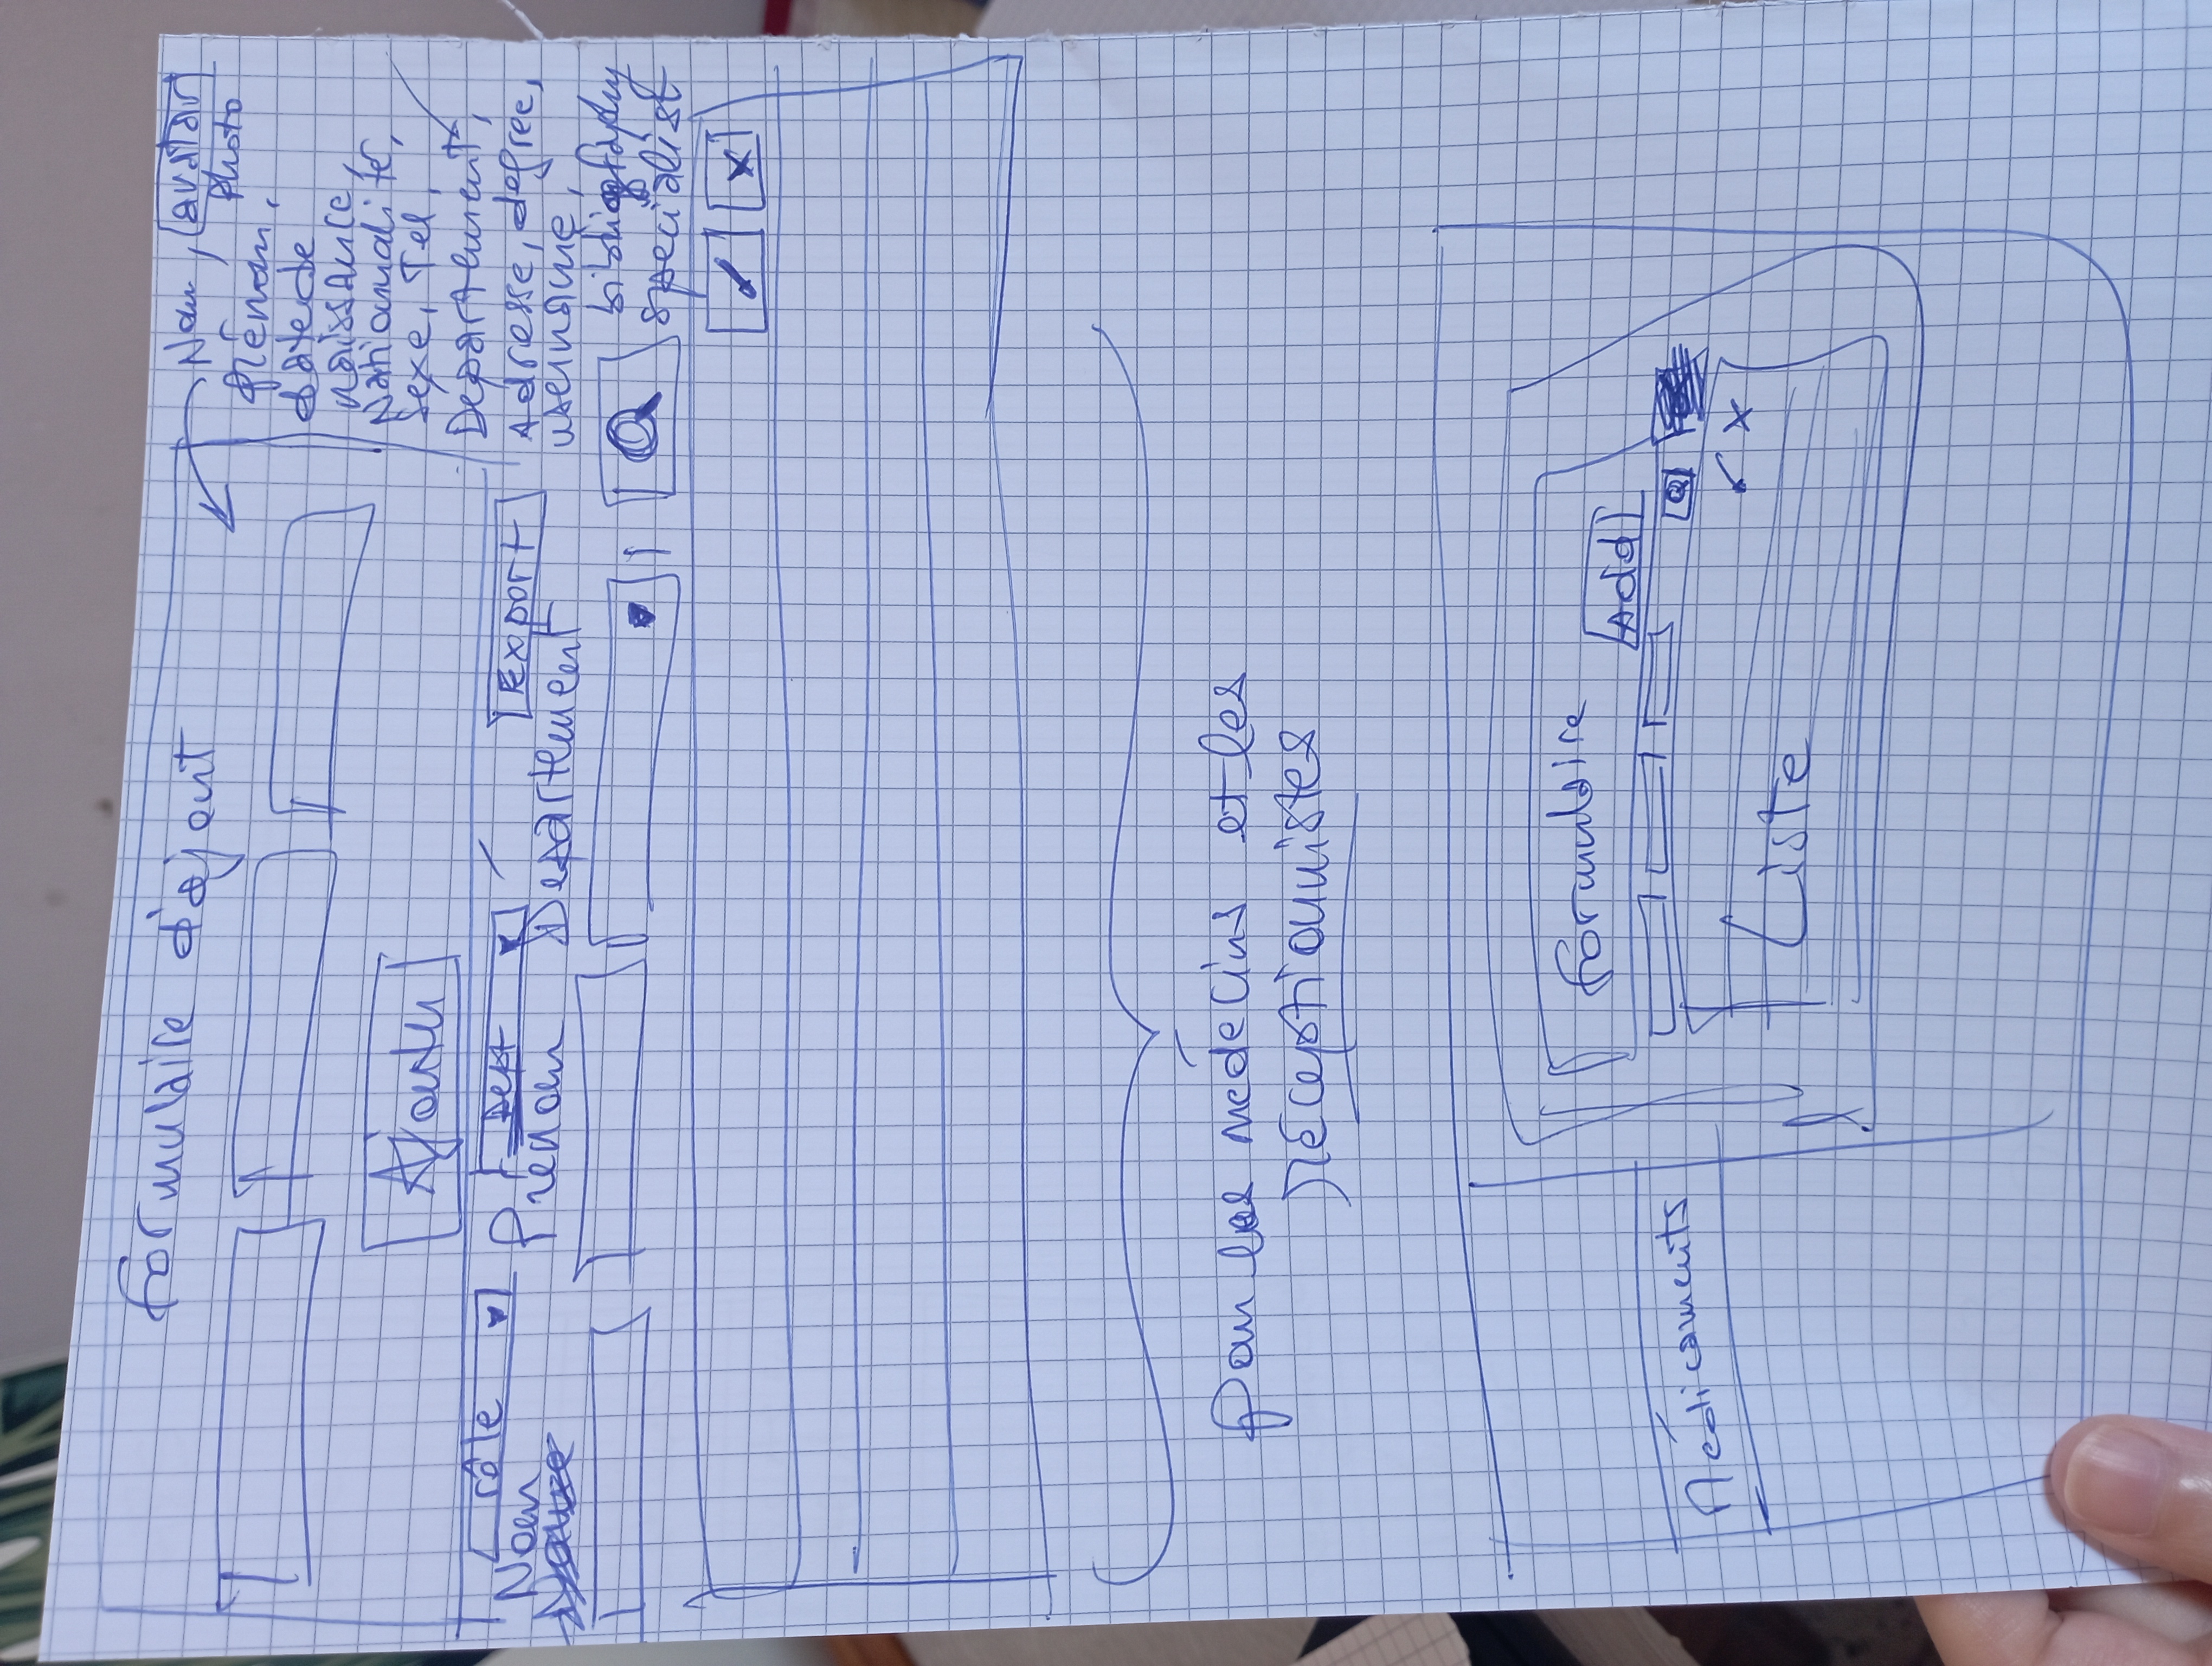 formulaire d'ajout
Nom, avatar
Photo
prénom,
date de
naissance,
Nationnalité,
Sexe, Tel,
Departement,
Adresse, degree,
username,
bibliography
specialist
Ajouter
rôle Dept Export
Nom Prénom Département
Pour les médecins et les
réceptionnistes
formulaire
Add
Médicaments
Liste